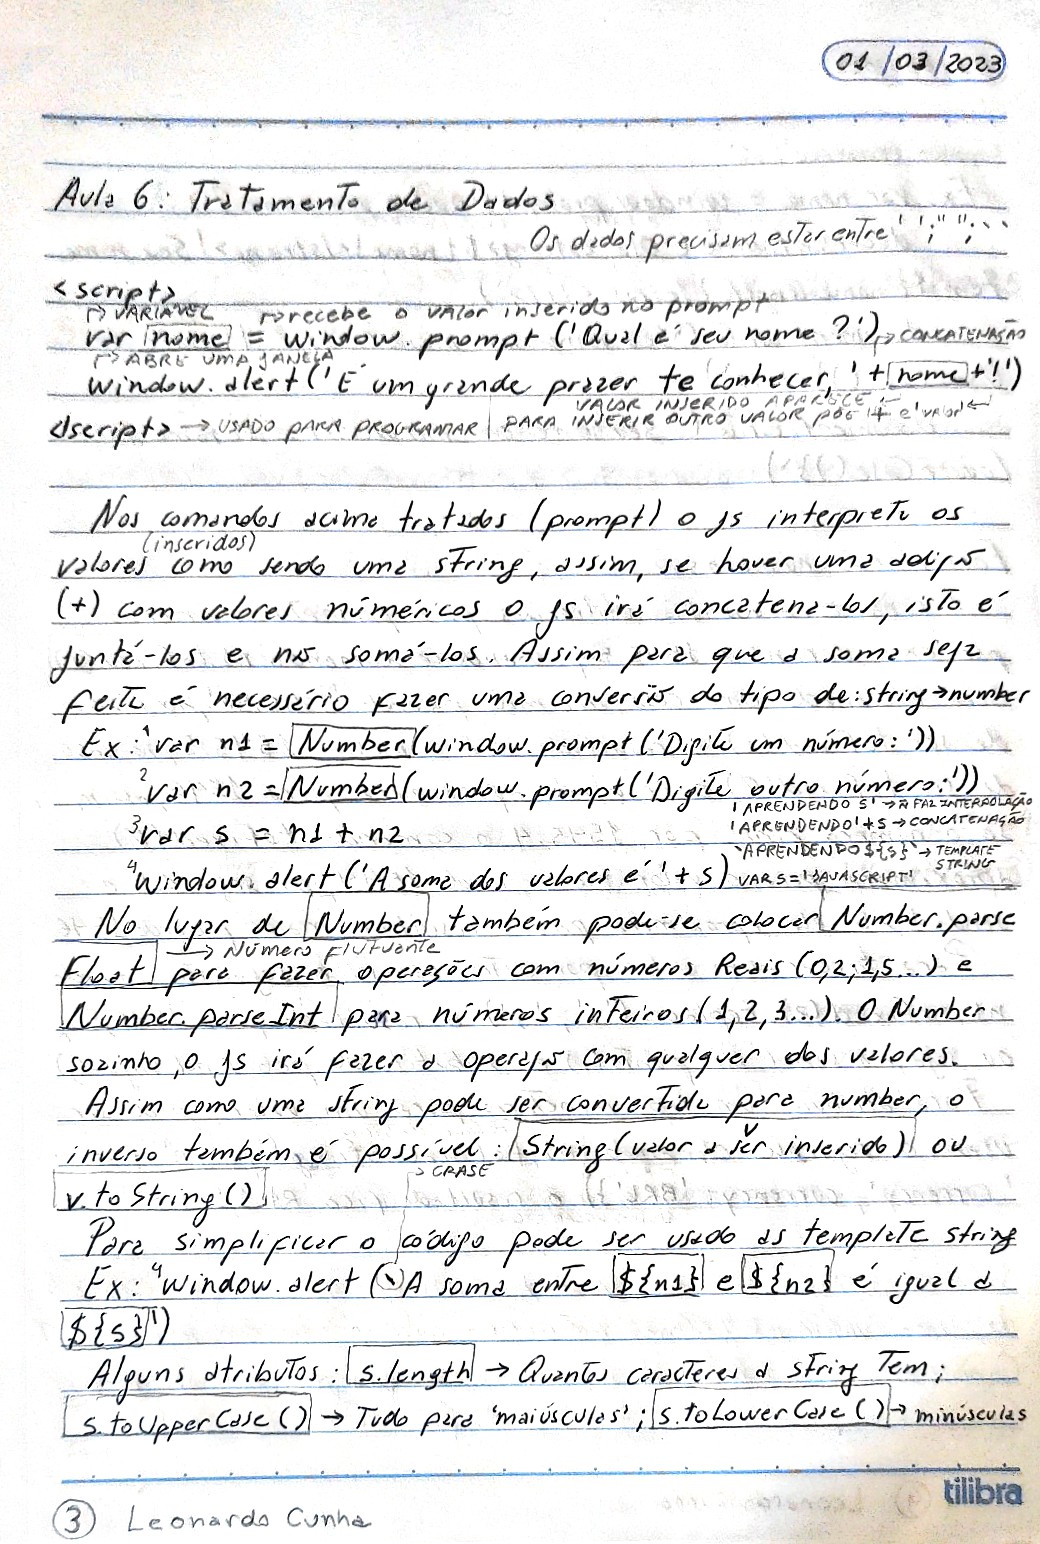 01/03/2023
Aula 6: Tratamento de Dados
Os dados precisam estar entre ' '; " "; ` `
<script>
↱ VARIÁVEL ↱ recebe o valor inserido no prompt
var nome = window.prompt ('Qual é seu nome ?') → CONCATENAÇÃO
↱ ABRE UMA JANELA
window.alert('É um grande prazer te conhecer, ' + nome + '!')
VALOR INSERIDO APARECE ←
</script> → USADO PARA PROGRAMAR | PARA INSERIR OUTRO VALOR PÕE + e 'valor' ↵
Nos comandos acima tratados (prompt) o JS interpreta os
(inseridos)
valores como sendo uma string, assim, se hover uma adição
(+) com valores núméricos o JS irá concatena-los, isto é
juntá-los e não somá-los. Assim para que a soma seja
feita é necessário fazer uma conversão do tipo de: string→number
Ex: ¹var n1 = Number(window.prompt('Digite um número:'))
²var n2 = Number(window.prompt('Digite outro número:'))
'APRENDENDO S' → Ñ FAZ INTERPOLAÇÃO
³var s = n1 + n2 'APRENDENDO' + S → CONCATENAÇÃO
`APRENDENDO ${s}` → TEMPLATE STRING
⁴Window.alert('A soma dos valores é ' + s) VAR S = 'JAVASCRIPT'
No lugar de Number também pode-se colocar Number.parse
→ Número flutuante
Float para fazer operações com números Reais (0,2; 1,5...) e
Number.parseInt para números inteiros (1, 2, 3...). O Number
sozinho, o JS irá fazer a operação com qualquer dos valores.
Assim como uma string pode ser convertida para number, o
inverso também é possível: String(valor a ser inserido) ou
→ CRASE
v.toString()
Para simplificar o código pode ser usado as template string
Ex: ⁴window.alert (`A soma entre ${n1} e ${n2} é igual a
${s}`)
Alguns atributos: s.length → Quantos caracteres a string Tem;
s.toUpperCase() → Tudo para 'maiúsculas'; s.toLowerCase() → minúsculas
tilibra
3 Leonardo Cunha